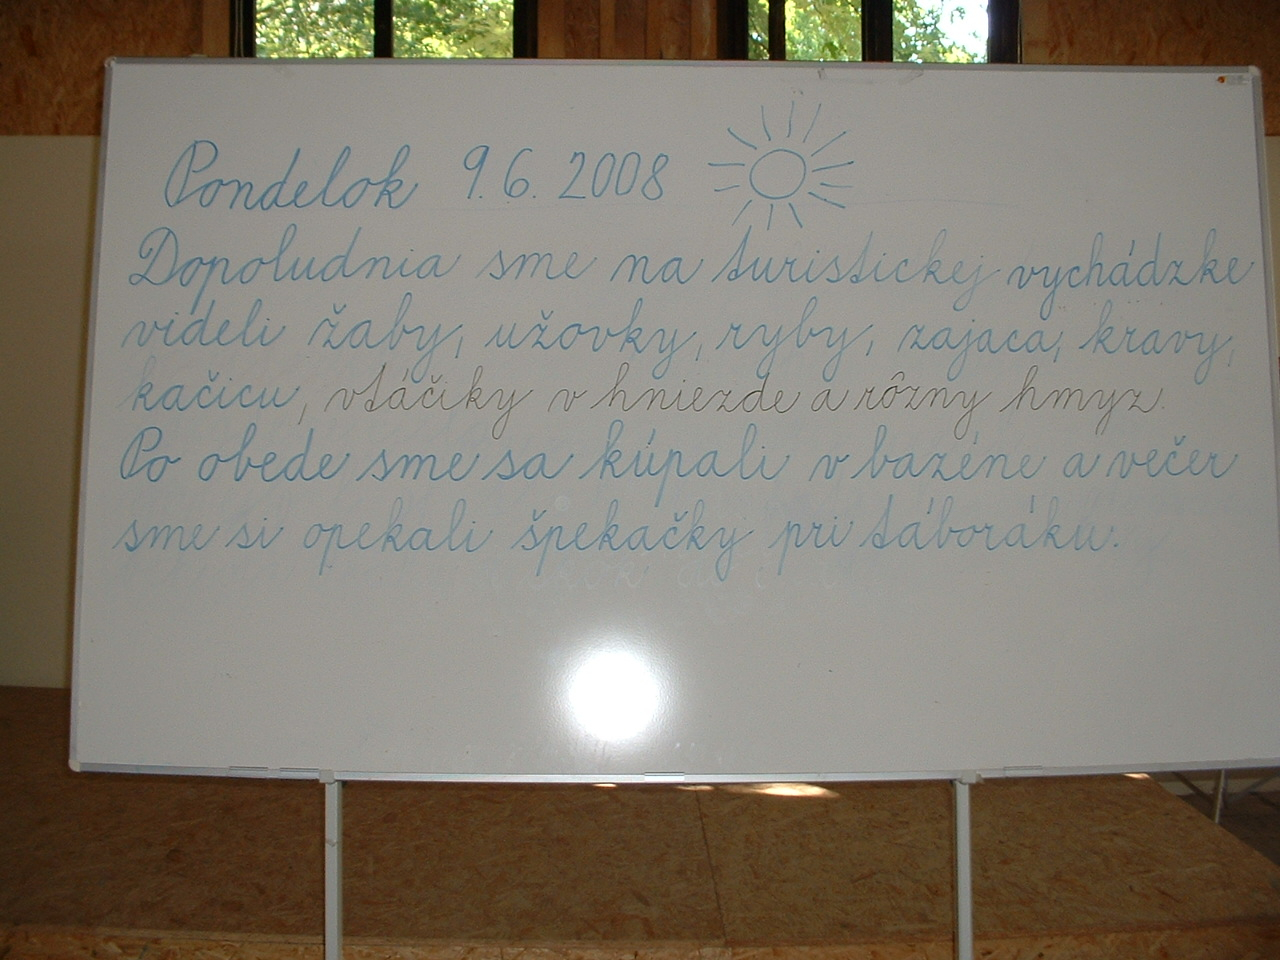 Pondelok 9.6. 2008
Dopoludnia sme na turistickej vychádzke
videli žaby, užovky, ryby, zajaca, kravy,
kačicu, vtáčiky v hniezde a rôzny hmyz.
Po obede sme sa kúpali v bazéne a večer
sme si opekali špekačky pri táboráku.